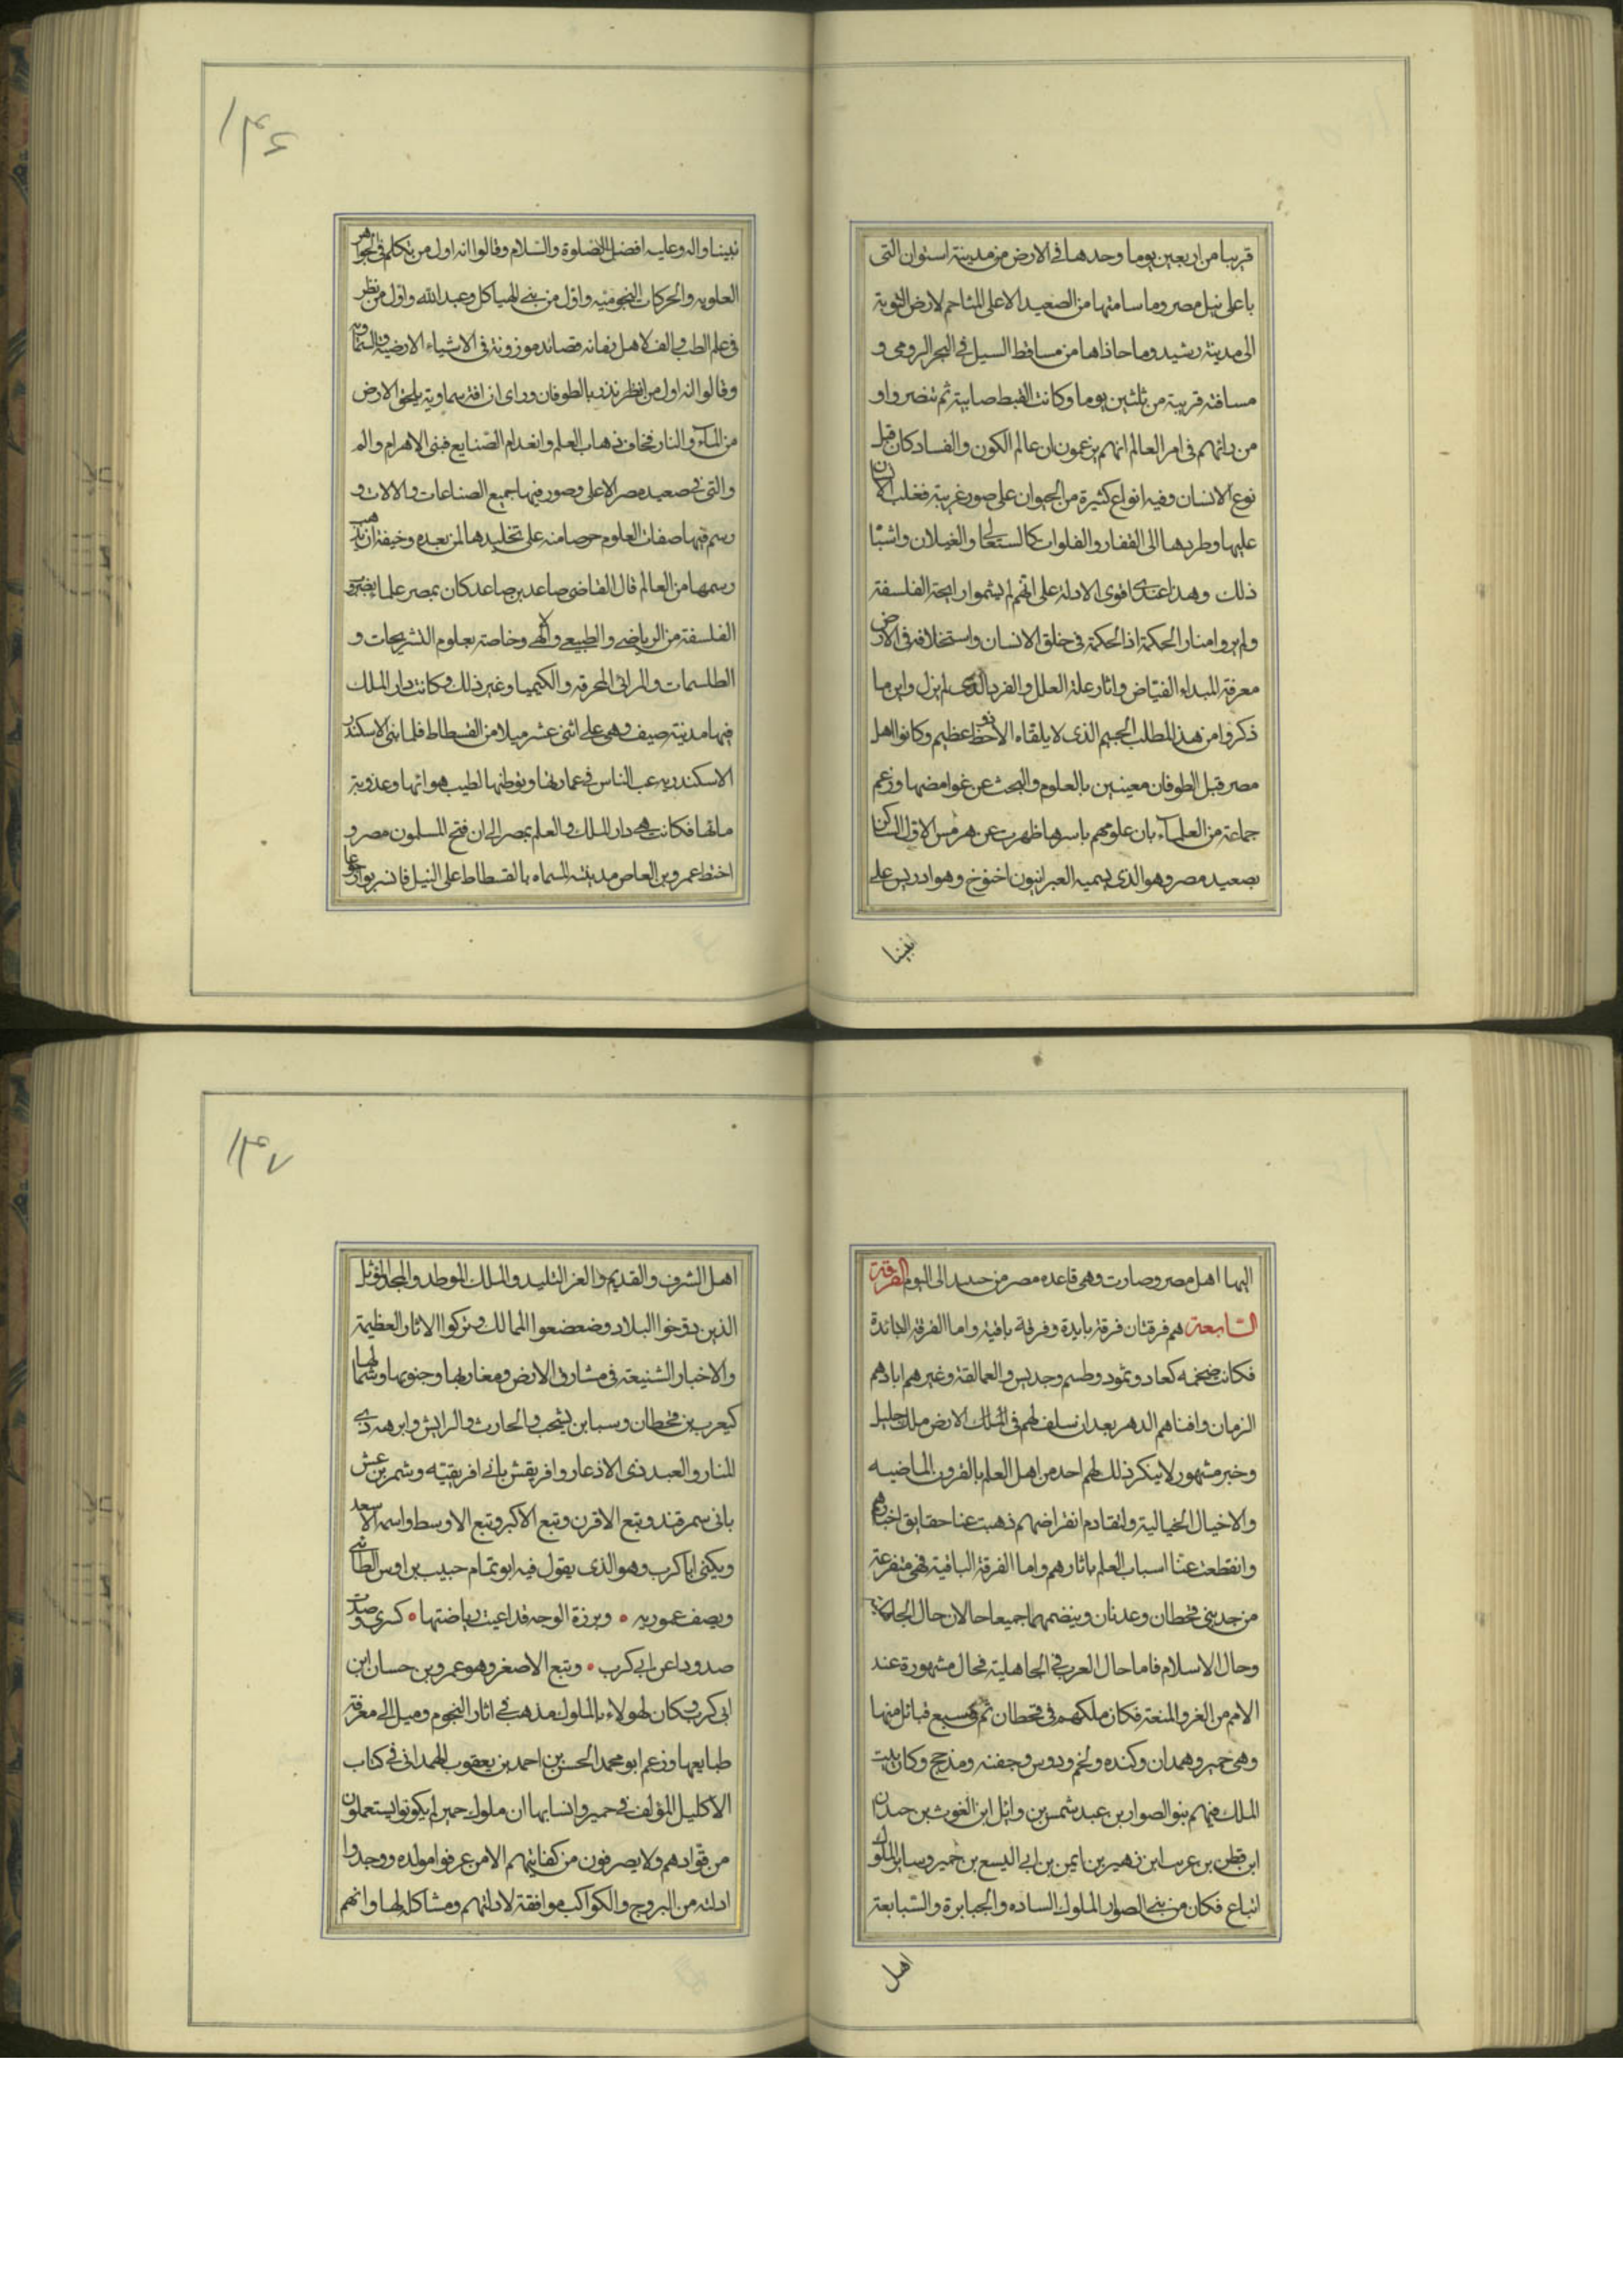 قريبا من اربعين يوما وحدها فى الارض من مدينة استوان التى
باعلى نيل مصر وما سامتها من الصعيد الاعلى المتاحم لارض النوبة
الى مدينة رشيد وما حاذاها من مساقط السيل فى البحر الرومى و
مسافته قريبة من ثلثين يوما وكانت القبط صابية ثم تنصروا و
من رائهم فى امر العالم انهم يزعمون ان عالم الكون والفساد كان قبل
نوع الانسان وفيه انواع كثيرة من الحيوان على صور غريبة فغلب
عليها وطردها الى القفار والفلوات كالسعالى والغيلان واشبا
ذلك وهذا عندى اقوى الادلة على انهم لم يشموا رايحة الفلسفة
ولم يروا منار الحكمة اذ الحكمة فى خلق الانسان واستخلافه فى الارض
معرفة المبداء الفياض واثار علة العلل والفرد الذى لم يزل واين ما
ذكروا من هذا المطلب الجسيم الذى لا يلقاه الا ذو حظ عظيم وكانوا اهل
مصر قبل الطوفان معينين بالعلوم والبحث عن غوامضها وزعم
جماعة من العلماء بان علومهم باسرها ظهرت عن هرمس الاول الساكن
بصعيد مصر وهو الذى يسميه العبرانيون اخنوخ وهو ادريس على
نبينا
١٣٤٦
نبينا واله وعليه افضل الصلوة والسلام وقالوا انه اول من تكلم فى الجواهر
العلويه والحركات النجومية واول من بنى الهياكل وعبد الله واول من نظر
فى علم الطب والف لاهل زمانه قصائد موزونة فى الاشياء الارضية والسماوية
وقالوا انه اول من انظر نذر بالطوفان وراى ان افة سماوية يلحق الارض
من الماء والنار فخاف ذهاب العلم وانعدام الصنايع فبنى الاهرام والم
والتى فى صعيد مصر الاعلى وصور فيها جميع الصناعات والالات و
رسم فيها صفات العلوم حرصا منه على تخليدها لمن بعده وخيفة ان يذهب
رسمها من العالم قال القاضى صاعد بن صاعد كان بمصر علما بضروب
الفلسفة من الرياضى والطبيعى والالهى وخاصة بعلوم النيرنجات و
الطلسمات والمرائى المحرقة والكيميا وغير ذلك وكانت دار الملك
فيها مدينة صيف وهى على اثنى عشر ميلا من الفسطاط فلما بنى الاسكندر
الاسكندريه رغب الناس فى عمارتها وتوطنها لطيب هوائها وعذوبة
مائها فكانت هى دار الملك والعلم بمصر الى ان فتح المسلمون مصر و
اختط عمرو بن العاص مدينته المسماه بالفسطاط على النيل فانسربوا
اليها اهل مصر وصارت وهى قاعده مصر من حينئذ الى اليوم الفرقة
السابعة هم فرقتان فرقة بايدة وفرقة باقية واما الفرقة البائدة
فكانت ضخمه كعاد وثمود وطسم وجديس والعمالقة وغيرهم ابادهم
الزمان وافناهم الدهر بعد ان سلف لهم فى الارض ملك جليل
وخبر مشهور لا ينكر ذلك لهم احد من اهل العلم بالقرون الماضيه
والاخيال الخيالية ولتقادم انقراضهم ذهبت عنا حقايق اخبارهم
وانقطعت عنا اسباب العلم باثارهم واما الفرقة الباقية فهى متفرعة
من جدينى قحطان وعدنان وينضمهما جميعا حالان حال الجاهلية
وحال الاسلام فاما حال العرب فى الجاهلية فحال مشهورة عند
الامم من الغز والمنعة فكان ملكهم فى قحطان ثم فى سبع قبائل منها
وهى حمير وهمدان وكنده ولخم ودوس وجفنه ومذحج وكان بيت
الملك منهم بنو الصوار بن عبد شمس بن وائل ابن الغوث بن حيدان
ابن قطن بن عريب ابن زهير بن ايمن بن ابى اليسع بن حمير وساير الملوك
اتباع فكان من بنى الصوار الملوك الساده والجبابرة والتبابعة
اهل
١٣٤٧
اهل الشرف والقديم والعز التليد والملك الموطد والمجد المؤثل
الذين دوخوا البلاد وضعضعوا الممالك وتركوا الاثار العظيمة
والاخبار الشنيعة فى مشارق الارض ومغاربها وجنوبها وشمالها
كيعرب بن قحطان وسبا بن يشجب والحارث والرايش وابرهه ذى
المنار والعبد ذى الاذعار وافريقش بانى افريقيه وشمر يرعش
بانى سمرقند وتبع الاقرن وتبع الاكبر وتبع الاوسط واسمه الاسعد
ويكنى ابا كرب وهو الذى يقول فيه ابو تمام حبيب بن اوس الطائى
ويصف عموريه • وبرزة الوجه قد اعيت رياضتها • كسرى وصدت
صدودا عن ابى كرب • وتبع الاصغر وهو عمرو بن حسان ابن
ابى كرب وكان لهولاء الملوك مذهب فى اثار النجوم وميل الى معرفة
طبايعها وزعم ابو محمد الحسن بن احمد بن يعقوب الهمدانى فى كتاب
الاكليل المؤلف فى حمير وانسابها ان ملوك حمير لم يكونوا يستعملون
من قوادهم ولا يصرفون من كفايتهم الا من عرفوا مولده ووجدوا
ادلته من البروج والكواكب موافقة لادلتهم ومشاكله لها وانهم